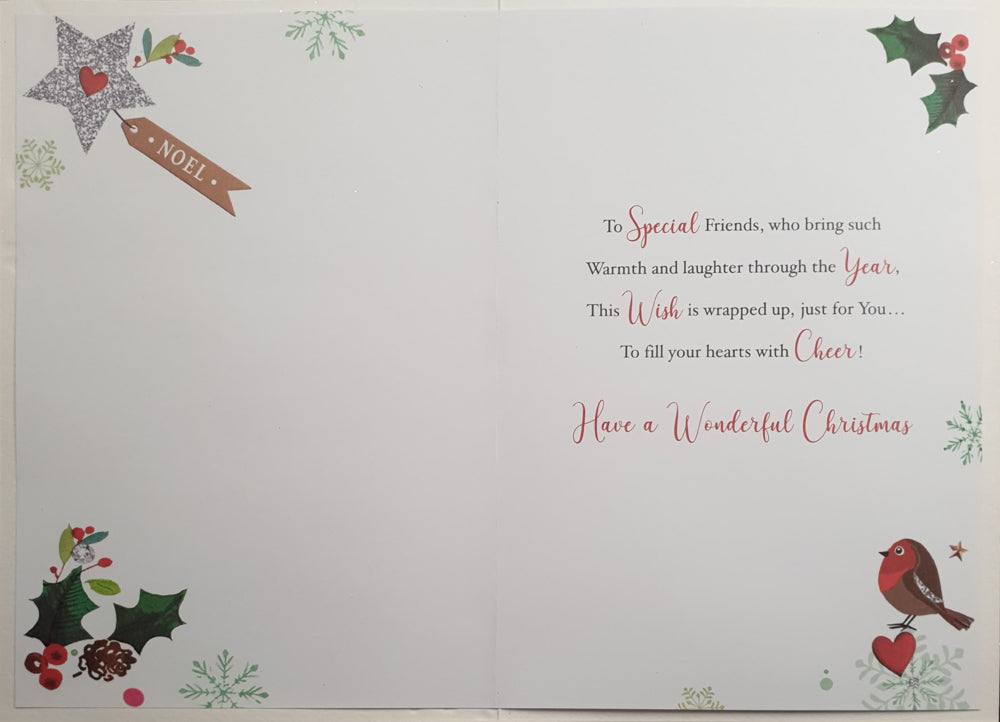 NOEL
To Special Friends, who bring such
Warmth and laughter through the Year,
This Wish is wrapped up, just for You...
To fill your hearts with Cheer!
Have a Wonderful Christmas